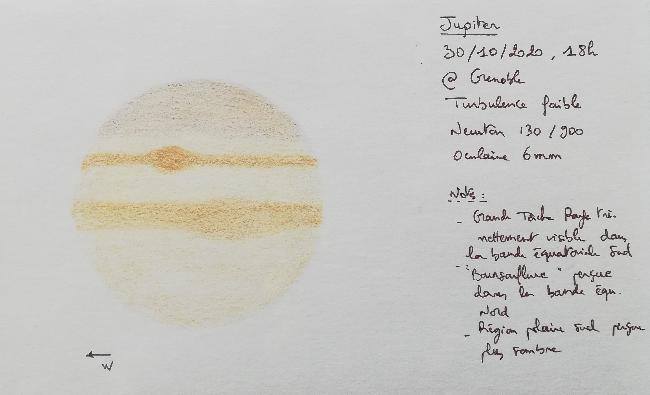 Jupiter
30/10/2020, 18h
@ Grenoble
Turbulence faible
Newton 130/900
Oculaire 6mm
Note :
- Grande Tache Rouge très
nettement visible dans
la bande équatoriale sud
- "Boursouflure" perçue
dans la bande équ.
Nord
- Région polaire sud perçue
plus sombre
W